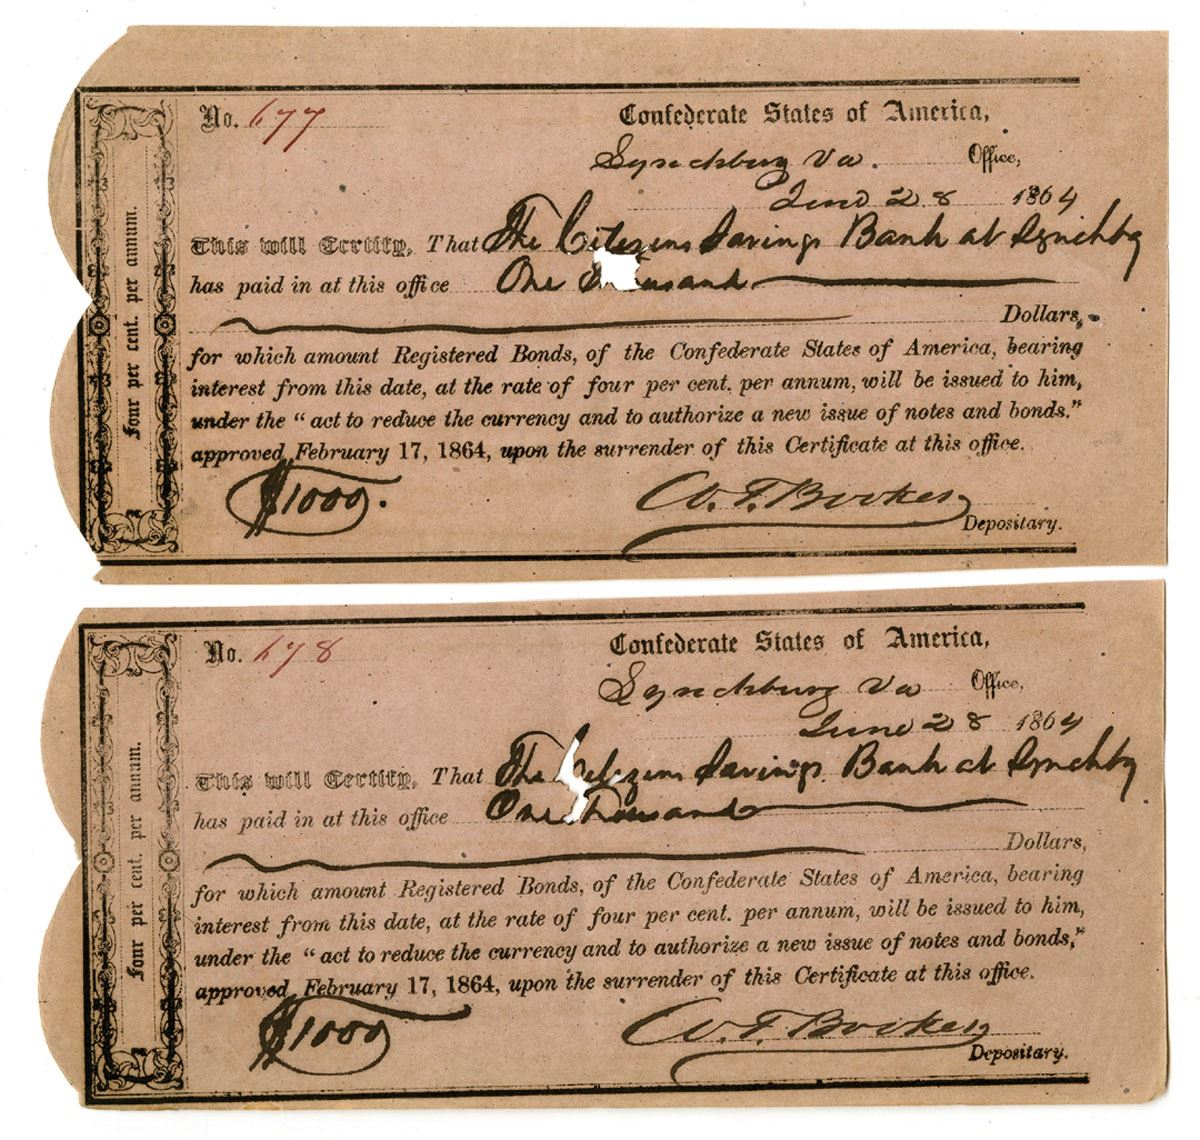 No. 677
Confederate States of America,
Lynchburg Va. Office,
June 28 1864
This will Certify, That The Citizens Savings Bank at Lynchbg
has paid in at this office One Thousand
Dollars,
for which amount Registered Bonds, of the Confederate States of America, bearing
interest from this date, at the rate of four per cent. per annum, will be issued to him,
under the "act to reduce the currency and to authorize a new issue of notes and bonds."
approved February 17, 1864, upon the surrender of this Certificate at this office.
$1000.
W. T. Booker
Depositary.
Four per cent. per annum.
No. 678
Confederate States of America,
Lynchburg Va Office,
June 28 1864
This will Certify, That The Citizens Savings Bank at Lynchbg
has paid in at this office One Thousand
Dollars,
for which amount Registered Bonds, of the Confederate States of America, bearing
interest from this date, at the rate of four per cent. per annum, will be issued to him,
under the "act to reduce the currency and to authorize a new issue of notes and bonds,"
approved February 17, 1864, upon the surrender of this Certificate at this office.
$1000
W. T. Booker
Depositary.
Four per cent. per annum.